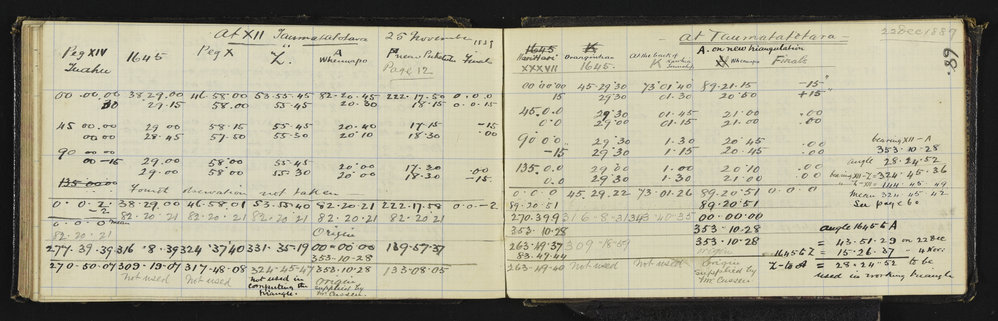 At XII Taumatatotara 25 November 1889
Peg XIV Tuahu 1645 Peg X Z. A Whenuapo P new Puketutu Page 12 Final
00.00.00 38.29.00 46.58.00 53.55.45 82.20.45 222.17.50 0.0.0
30 29.15 58.00 55.45 20.30 18.15 0.0.15
45 00.00 29.00 58.15 55.45 20.40 17.15 -15
00.00 28.45 57.50 55.30 20.10 18.30 .00
90 00.00
00-15 29.00 58.00 55.45 20.00 17.30 .00
29.00 58.00 55.30 20.00 18.30 -15
135.00.00
Fourth observation not taken
0.0.2 38.29.00 46.58.01 53.55.40 82.20.21 222.17.58 0.0.-2
-2 82.20.21 82.20.21 82.20.21 82.20.21 82.20.21
0.0.0 mean
82.20.21 Origin
277.39.39 316.8.39 324.37.40 331.35.19 00.00.00 139.57.37
353.10.28
270.50.07 309.19.07 317.48.08 324.45.47 353.10.28 133.08.05
Not used Not used not used in computing the triangle. Origin supplied by Mr Cussen
At Taumatatotara 22 Dec 1889
89.
1645 K A. on new triangulation
XXXVII 1645. At the back of K Township Whenuapo Finals
00.00.00 45.29.30 73.01.40 89.21.15 -15"
15 29.30 01.30 20.50 +15"
45.0.0 29.30 01.45 21.00 .00
0.0 29.00 01.15 21.00 .00
90.0.0 29.30 1.30 20.45 .00
-15 29.30 1.15 20.45 .00
135.0.0 29.30 1.00 20.10 .00
0.0 29.30 1.30 21.00 .00
0.0.0 45.29.22 73.01.26 89.20.51 0.0.0
89.20.51 89.20.51
270.39.9 316.8.31 343.40.35 00.00.00
353.10.28 353.10.28
263.49.37 309.18.59 353.10.28
83.49.44
263.49.40 Not used Not used Origin supplied by Mr Cussen
bearing XII - A
353.10.28
angle 28.24.52
bearing XII-Z = 324.45.36
" Z-XII = 144.45.49
mean 324.45.42
See page 60
angle 1645 to A
= 43.51.29 on 22 Dec
1645 to Z = 15.26.37 - 4 Nov.
Z to A = 28.24.52 to be
used in working triangle